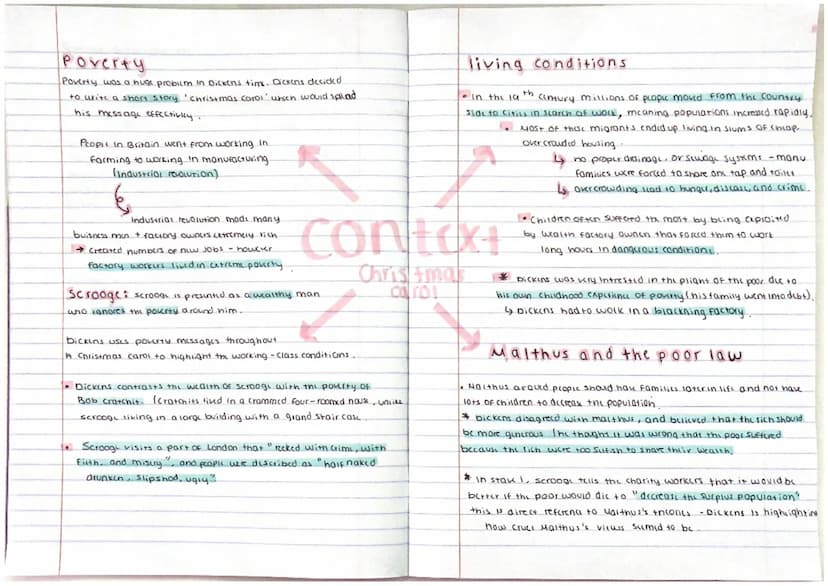 Poverty
Poverty was a huge problem in Dickens time. Dickens decided
to write a short story 'Christmas carol' which would spend
his message effectivley.
People in Britain went from working in
farming to working in manufacturing
(Industrial revolution)
Industrial revolution made many
business men + factory owners extremely rich
→ Created numbers of new jobs - however
factory workers lived in extreme poverty
Scrooge: Scrooge is presented as a wealthy man
who ignores the poverty around him.
Dickens uses poverty messages throughout
A Christmas carol to highlight the working-class conditions.
• Dickens contrasts the wealth of scrooge with the poverty of
Bob Cratchit. (Cratchits lived in a crammed four-roomed house, unlike
scrooge living in a large building with a grand stair case.
• Scrooge visits a part of London that "reeked with crime, with
filth, and misery", and people are described as "half naked
drunken, slipshod, ugly".
Context
Christmas
carol
living conditions
• In the 19th century millions of people moved from the country
side to cities in search of work, meaning populations increased rapidly.
• Most of these migrants ended up living in slums of cheap,
overcrowded housing.
↳ no proper drainage, or sewage systems - many
families were forced to share one tap and toilet
↳ overcrowding lead to hunger, disease, and crime.
• Children often suffered the most by being exploited
by wealth factory owners that forced them to work
long hours in dangerous conditions.
* Dickens was very intrested in the plight of the poor due to
his own childhood experience of poverty (his family went into debt).
↳ Dickens had to work in a blackning factory.
Malthus and the poor law
• Malthus argued people should have families later in life and not have
lots of children to decrease the population.
* Dickens disagreed with malthus, and believed that the rich should
be more generous (he thought it was wrong that the poor suffered
because the rich were too selfish to share their wealth.
* In stave 1, scrooge tells the charity workers that it would be
better if the poor would die to "decrease the surplus population"
this is direct reference to Malthus's theories - Dickens is highlighting
how cruel Malthus's views seemed to be.